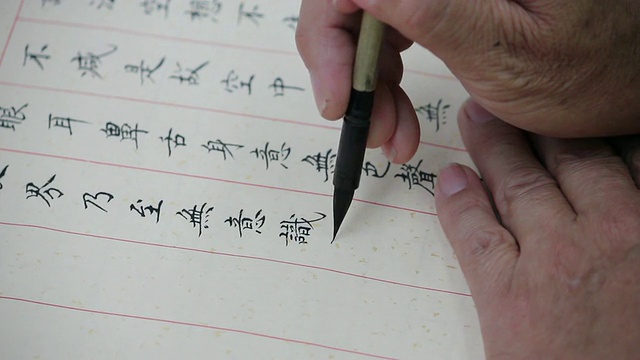 法空想不
不減是故空中無
眼耳鼻舌身意無色聲
界乃至無意識